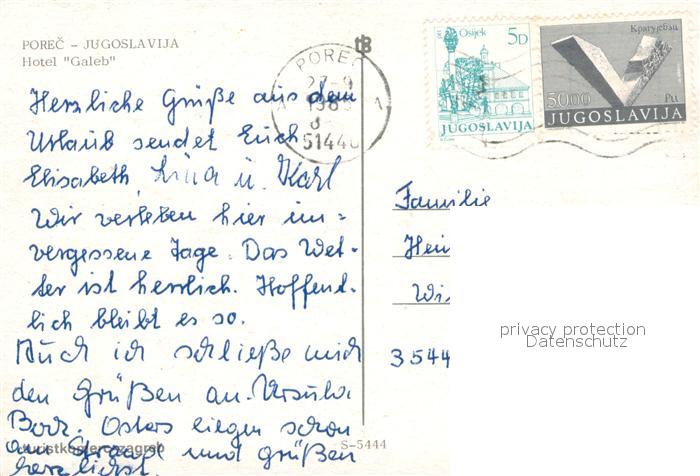 POREČ - JUGOSLAVIJA
Hotel "Galeb"
Herzliche Grüße aus dem
Urlaub sendet Euch
Elisabeth, Lina u. Karl
Wir verleben hier un=
vergessene Tage. Das Wet-
ter ist herrlich. Hoffent-
lich bleibt es so.
Auch ich schließe mich
den Grüßen an. Ursula
Bock. Osters liegen schon
am Strand und grüßen
herzlichst.
turistkomerc zagreb
S-5444
POREČ
27-9
51440
Osijek
5D
JUGOSLAVIJA
Крагујевац
5000
JUGOSLAVIJA
Familie
Hein
Wi
3544
privacy protection
Datenschutz